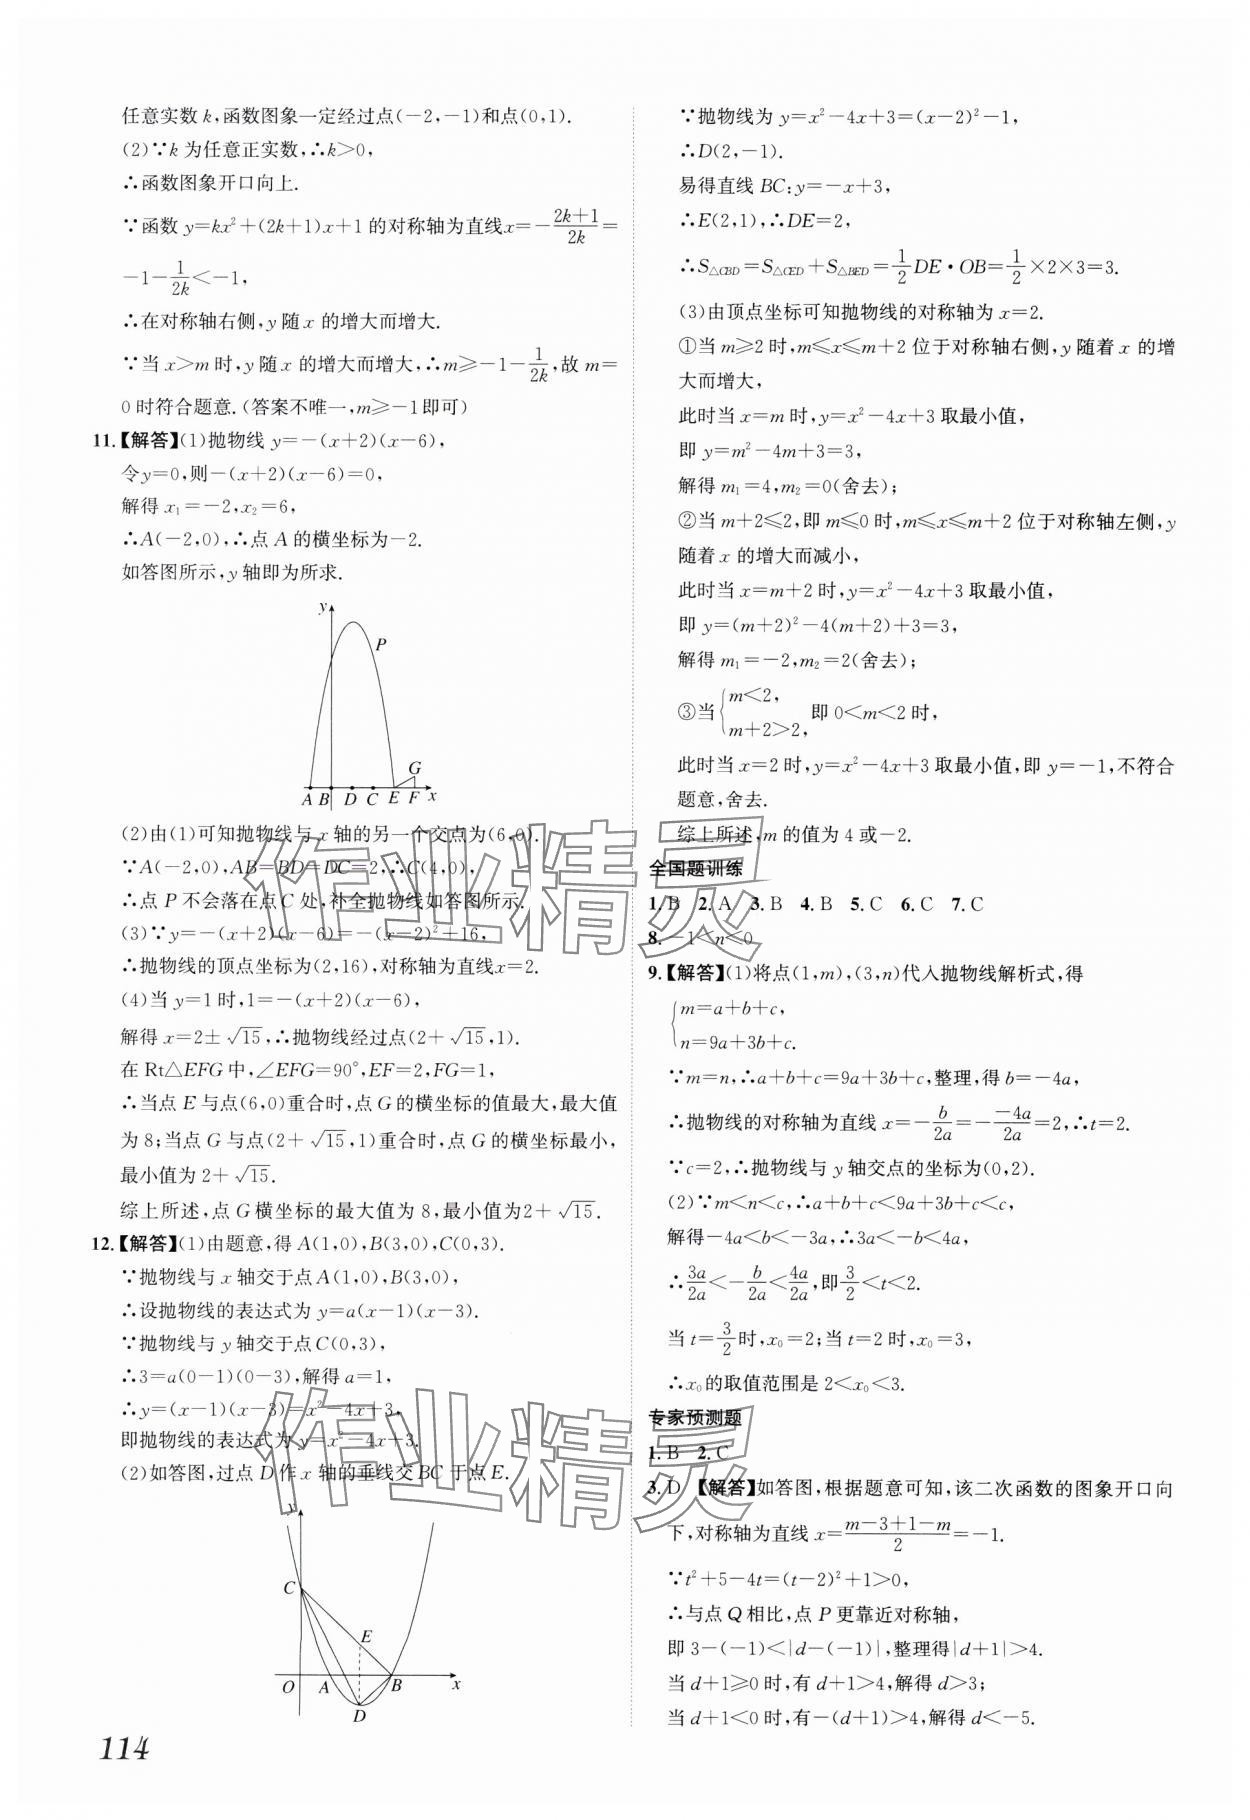 任意实数 k,函数图象一定经过点(-2,-1)和点(0,1).
(2)∵k 为任意正实数,∴k>0,
∴函数图象开口向上.
∵函数 y=kx²+(2k+1)x+1 的对称轴为直线x=-\frac{2k+1}{2k}=
-1-\frac{1}{2k}<-1,
∴在对称轴右侧,y 随 x 的增大而增大.
∵当 x>m 时,y 随 x 的增大而增大,∴m≥-1-\frac{1}{2k},故 m=
0 时符合题意.(答案不唯一,m≥-1即可)
11.【解答】(1)抛物线 y=-(x+2)(x-6),
令y=0,则-(x+2)(x-6)=0,
解得 x₁=-2,x₂=6,
∴A(-2,0),∴点 A 的横坐标为-2.
如答图所示,y 轴即为所求.
y
P
G
A B D C E F x
(2)由(1)可知抛物线与 x 轴的另一个交点为(6,0).
∵A(-2,0),AB=BD=DC=2,∴C(4,0),
∴点 P 不会落在点 C 处,补全抛物线如答图所示.
(3)∵y=-(x+2)(x-6)=-(x-2)²+16,
∴抛物线的顶点坐标为(2,16),对称轴为直线x=2.
(4)当 y=1 时,1=-(x+2)(x-6),
解得 x=2±√15,∴抛物线经过点(2+√15,1).
在 Rt△EFG 中,∠EFG=90°,EF=2,FG=1,
∴当点 E 与点(6,0)重合时,点 G 的横坐标的值最大,最大值
为 8;当点 G 与点(2+√15,1)重合时,点 G 的横坐标最小,
最小值为 2+√15.
综上所述,点 G 横坐标的最大值为 8,最小值为2+√15.
12.【解答】(1)由题意,得 A(1,0),B(3,0),C(0,3).
∵抛物线与 x 轴交于点 A(1,0),B(3,0),
∴设抛物线的表达式为 y=a(x-1)(x-3).
∵抛物线与 y 轴交于点 C(0,3),
∴3=a(0-1)(0-3),解得 a=1,
∴y=(x-1)(x-3)=x²-4x+3,
即抛物线的表达式为 y=x²-4x+3.
(2)如答图,过点 D 作 x 轴的垂线交 BC 于点 E.
y
C
E
O A B x
D
114
∵抛物线为 y=x²-4x+3=(x-2)²-1,
∴D(2,-1).
易得直线 BC:y=-x+3,
∴E(2,1),∴DE=2,
∴S△CBD=S△CED+S△BED=\frac{1}{2}DE·OB=\frac{1}{2}×2×3=3.
(3)由顶点坐标可知抛物线的对称轴为 x=2.
①当 m≥2 时,m≤x≤m+2 位于对称轴右侧,y 随着 x 的增
大而增大,
此时当 x=m 时,y=x²-4x+3 取最小值,
即 y=m²-4m+3=3,
解得 m₁=4,m₂=0(舍去);
②当 m+2≤2,即 m≤0 时,m≤x≤m+2 位于对称轴左侧,y
随着 x 的增大而减小,
此时当 x=m+2 时,y=x²-4x+3 取最小值,
即 y=(m+2)²-4(m+2)+3=3,
解得 m₁=-2,m₂=2(舍去);
③当{m<2, m+2>2, 即 0<m<2 时,
此时当 x=2 时,y=x²-4x+3 取最小值,即 y=-1,不符合
题意,舍去.
综上所述,m 的值为 4 或-2.
全国题训练
1. B 2. A 3. B 4. B 5. C 6. C 7. C
8. -1<n<0
9.【解答】(1)将点(1,m),(3,n)代入抛物线解析式,得
{m=a+b+c,
n=9a+3b+c.
∵m=n,∴a+b+c=9a+3b+c,整理,得 b=-4a,
∴抛物线的对称轴为直线 x=-\frac{b}{2a}=-\frac{-4a}{2a}=2,∴t=2.
∵c=2,∴抛物线与 y 轴交点的坐标为(0,2).
(2)∵m<n<c,∴a+b+c<9a+3b+c<c,
解得-4a<b<-3a,∴3a<-b<4a,
∴\frac{3a}{2a}<-\frac{b}{2a}<\frac{4a}{2a},即\frac{3}{2}<t<2.
当 t=\frac{3}{2}时,x₀=2;当 t=2 时,x₀=3,
∴x₀的取值范围是 2<x₀<3.
专家预测题
1. B 2. C
3. D 【解答】如答图,根据题意可知,该二次函数的图象开口向
下,对称轴为直线 x=\frac{m-3+1-m}{2}=-1.
∵t²+5-4t=(t-2)²+1>0,
∴与点 Q 相比,点 P 更靠近对称轴,
即 3-(-1)<|d-(-1)|,整理得|d+1|>4.
当 d+1≥0 时,有 d+1>4,解得 d>3;
当 d+1<0 时,有-(d+1)>4,解得 d<-5.
作业精灵
作业精灵